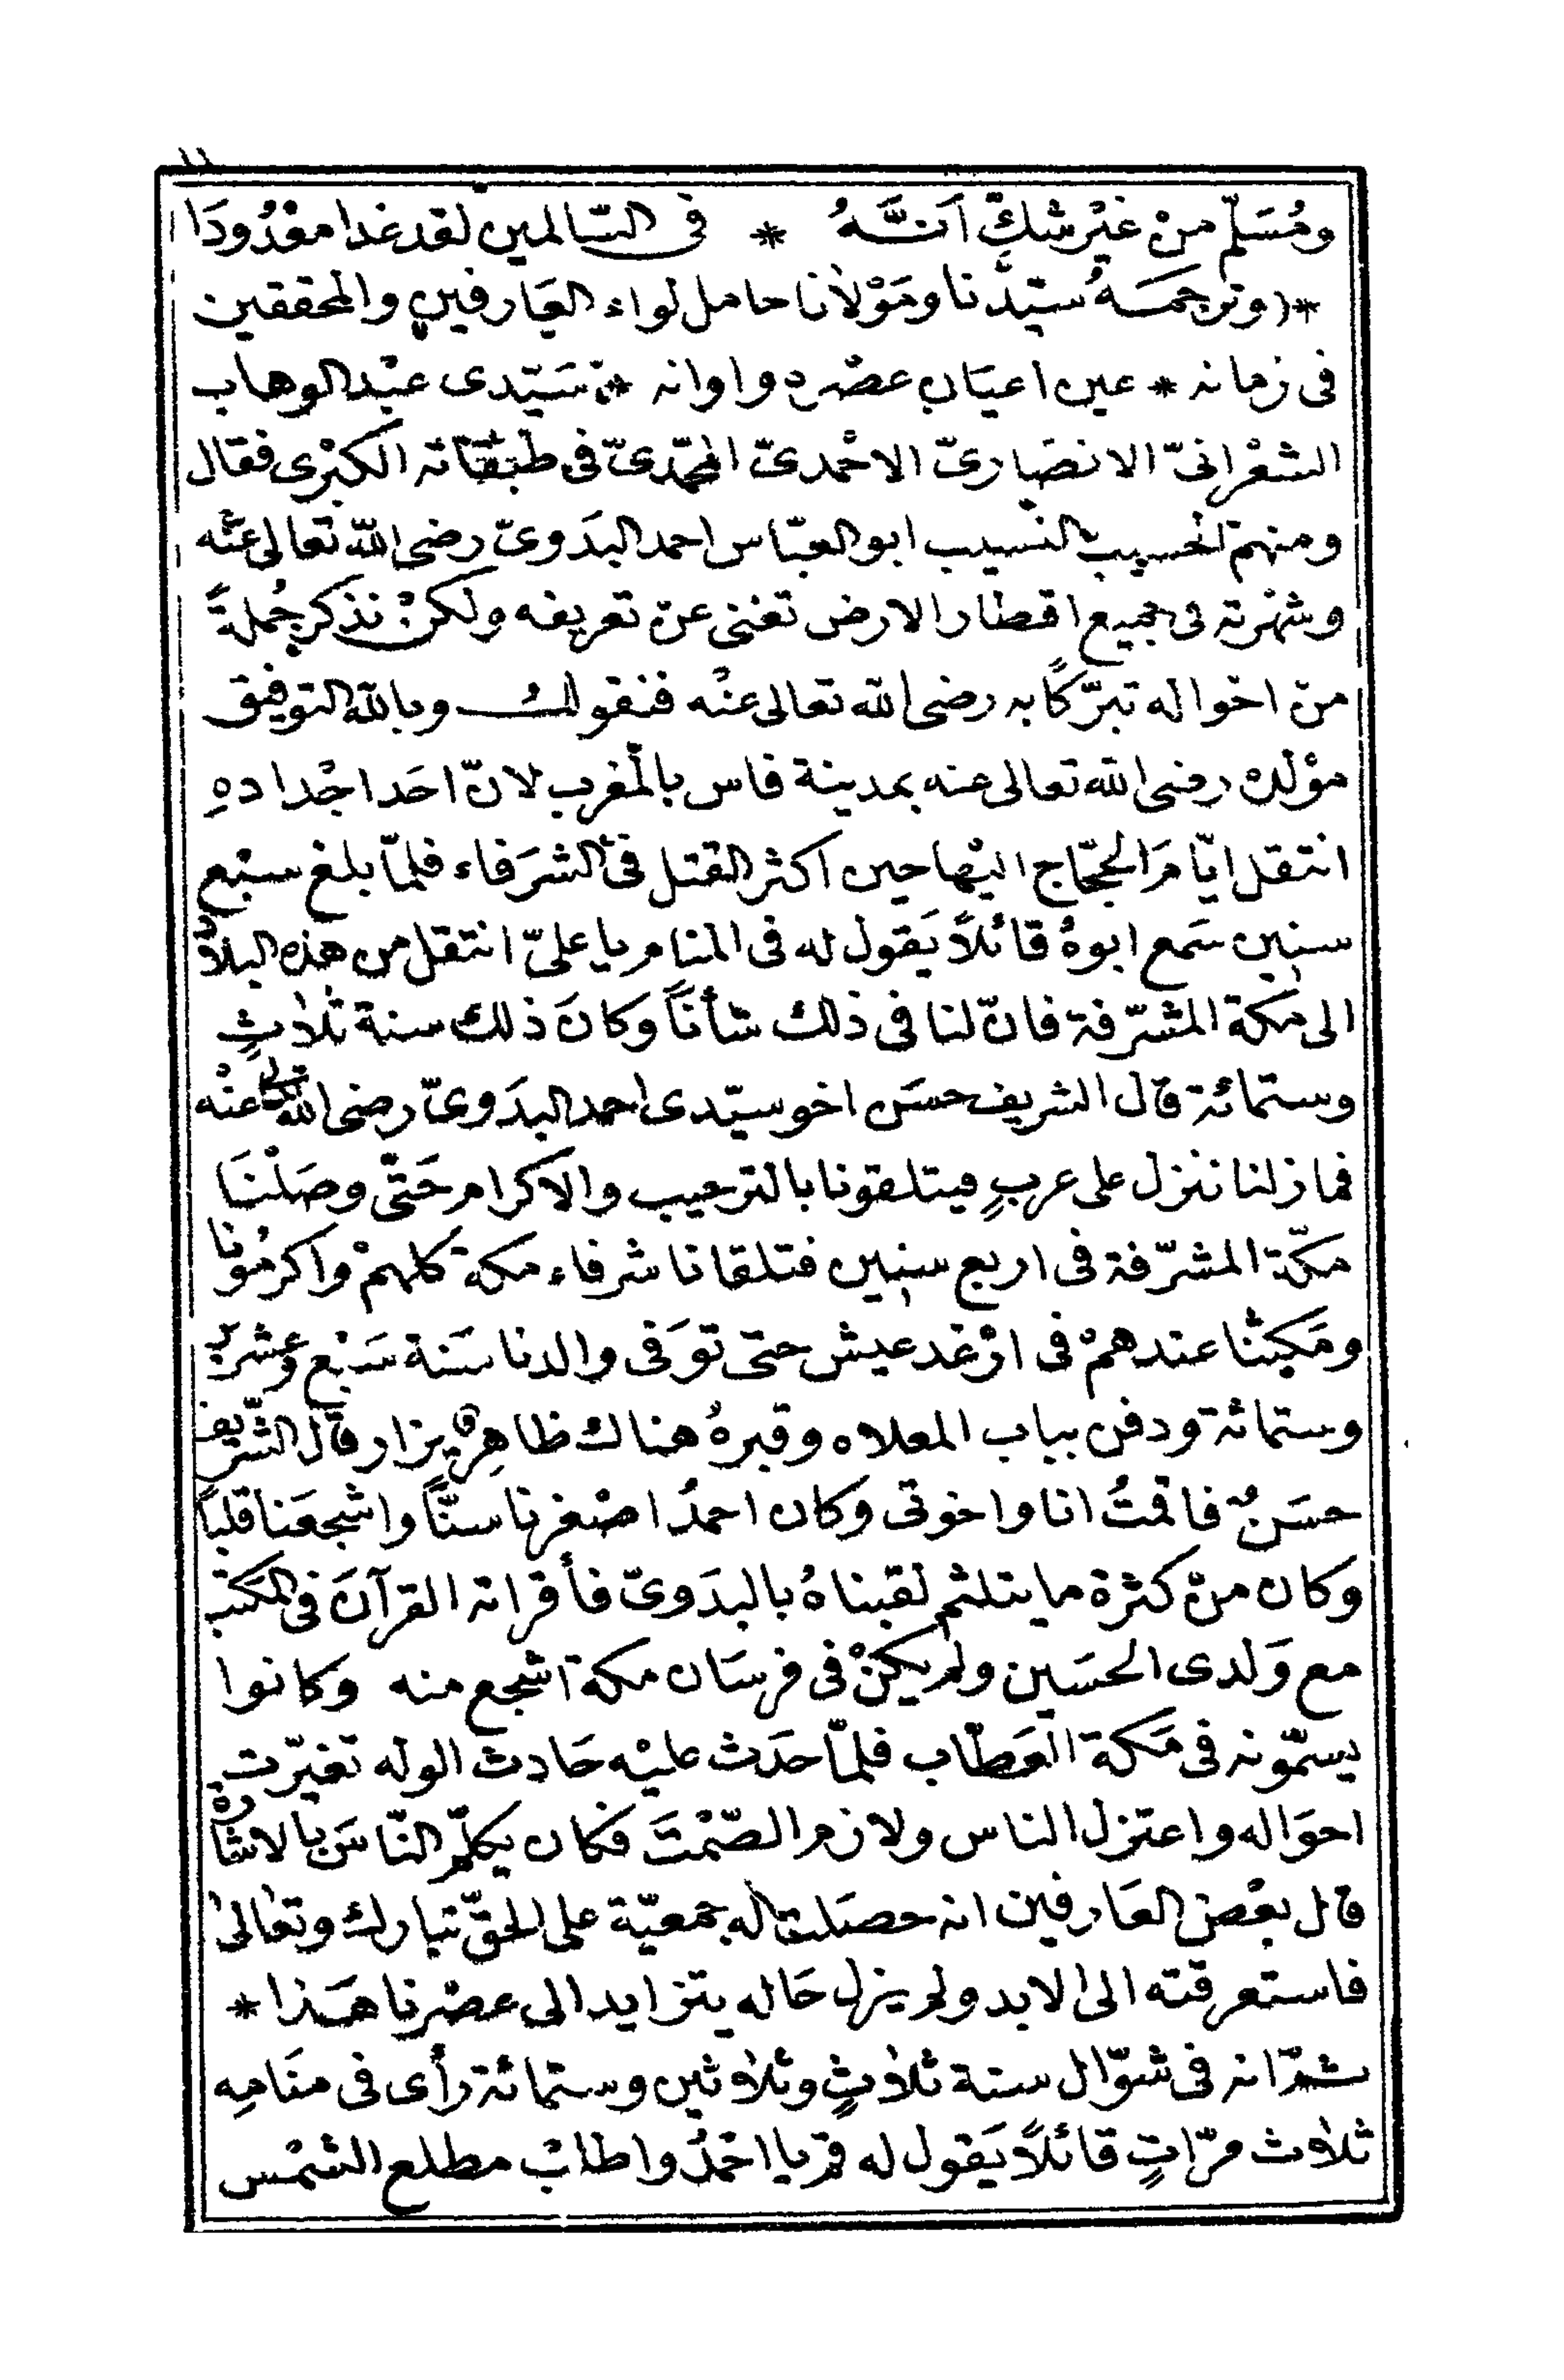 ١١
ومُسَلّم منْ غيْر شكٍّ اَنَّهُ * فى السّالمين لقد غدا معْدُودَا
*(وترجمَهُ سيّدنا ومَوْلانا حامل لواء العَارفين والمحققين
فى زمانه * عين اعيَان عصْره واوانه * سَيّدى عبْد الوهاب
الشعْرانىّ الانصَارىّ الاحْمدىّ المحمّدىّ فى طبَقاته الكبْرى فقال
ومنهم الحسيب النسيب ابو العبّاس احمد البدَوىّ رضى الله تعالى عنْه
وشهْرته فى جميع اقطار الارض تغنى عن تعريفه ولكنْ نذكر جُملةً
من احْواله تبرّكًا به رضى الله تعالى عنْه فنقول وبالله التوفيق
موْلده رضى الله تعالى عنه بمدينة فاس بالمغرب لانّ احَد اجْدادهِ
انتقل ايّامَ الحجّاج اليْها حين اكثر القتل فى الشرَفاء فلمّا بلغ سبْع
سنين سَمع ابوهُ قائلاً يَقول له فى المنام يا علىّ انتقل من هذه البلاد
الى مَكة المشرّفة فانّ لنا فى ذلك شأنًا وكانَ ذلك سنة ثلاثٍ
وستمائة قال الشريف حسَن اخو سيّدى احمد البدَوىّ رضى الله تعالى عنْه
فما زلنا ننزل على عربٍ فيتلقونا بالترحيب والاكرام حَتّى وصَلْنَا
مكّة المشرّفة فى اربع سنين فتلقانا شرفاء مكة كلهمْ واكرمُونا
ومَكثنا عندهمْ فى ارْغد عيش حتى توَفى والدنا سَنة سَبْع وعشرين
وستمائة ودفن بباب المعلاه وقبرهُ هناك ظاهرٌ يزار قال الشّريف
حسَنٌ فاقمتُ انا واخوتى وكان احمدُ اصْغرنا سنًّا واشجعَنا قلبًا
وكان منْ كثرة ما يتلثم لقبناهُ بالبدَوىّ فأقراته القرآنَ فى المَكتب
مع وَلدى الحسَين ولم يكنْ فى فرسَان مكة اشجع منه وكانوا
يسمّونه فى مَكة العَطّاب فلمّا حدَث عليْه حَادث الوله تغيّرت
احوَاله واعتزل الناس ولازم الصّمْتَ فكان يكلّم النّاسَ بالاشارة
قال بعْض العَارفين انه حصَلت له جمعيّة على الحقّ تبارك وتعَالى
فاستعرقته الى الابد ولم يزل حَاله يتزايد الى عصْرنا هَذا *
ثمّ انه فى شوّال سنة ثلاثٍ وثلاثين وستمائة رأى فى منَامِه
ثلاث مرّاتٍ قائلاً يَقول له قم يا احْمدُ واطلبْ مطلع الشمْس